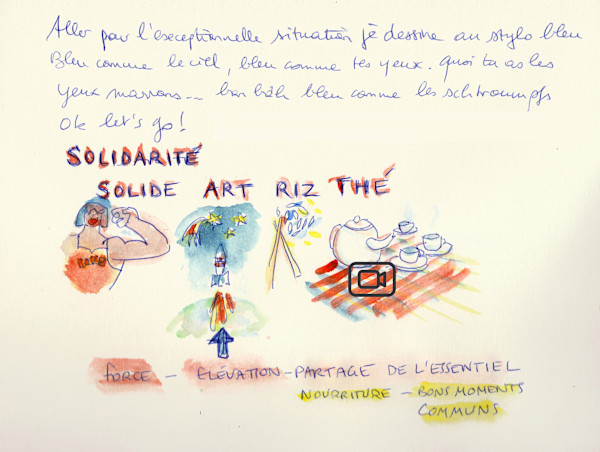 Aller pour l'exceptionnelle situation je dessine au stylo bleu
Bleu comme le ciel, bleu comme tes yeux. Quoi tu as les
yeux marrons... bon bâh bleu comme les schtroumpfs
Ok let's go!
SOLIDARITÉ
SOLIDE ART RIZ THÉ
FORCE - ELÉVATION - PARTAGE DE L'ESSENTIEL
NOURRITURE - BONS MOMENTS
COMMUNS